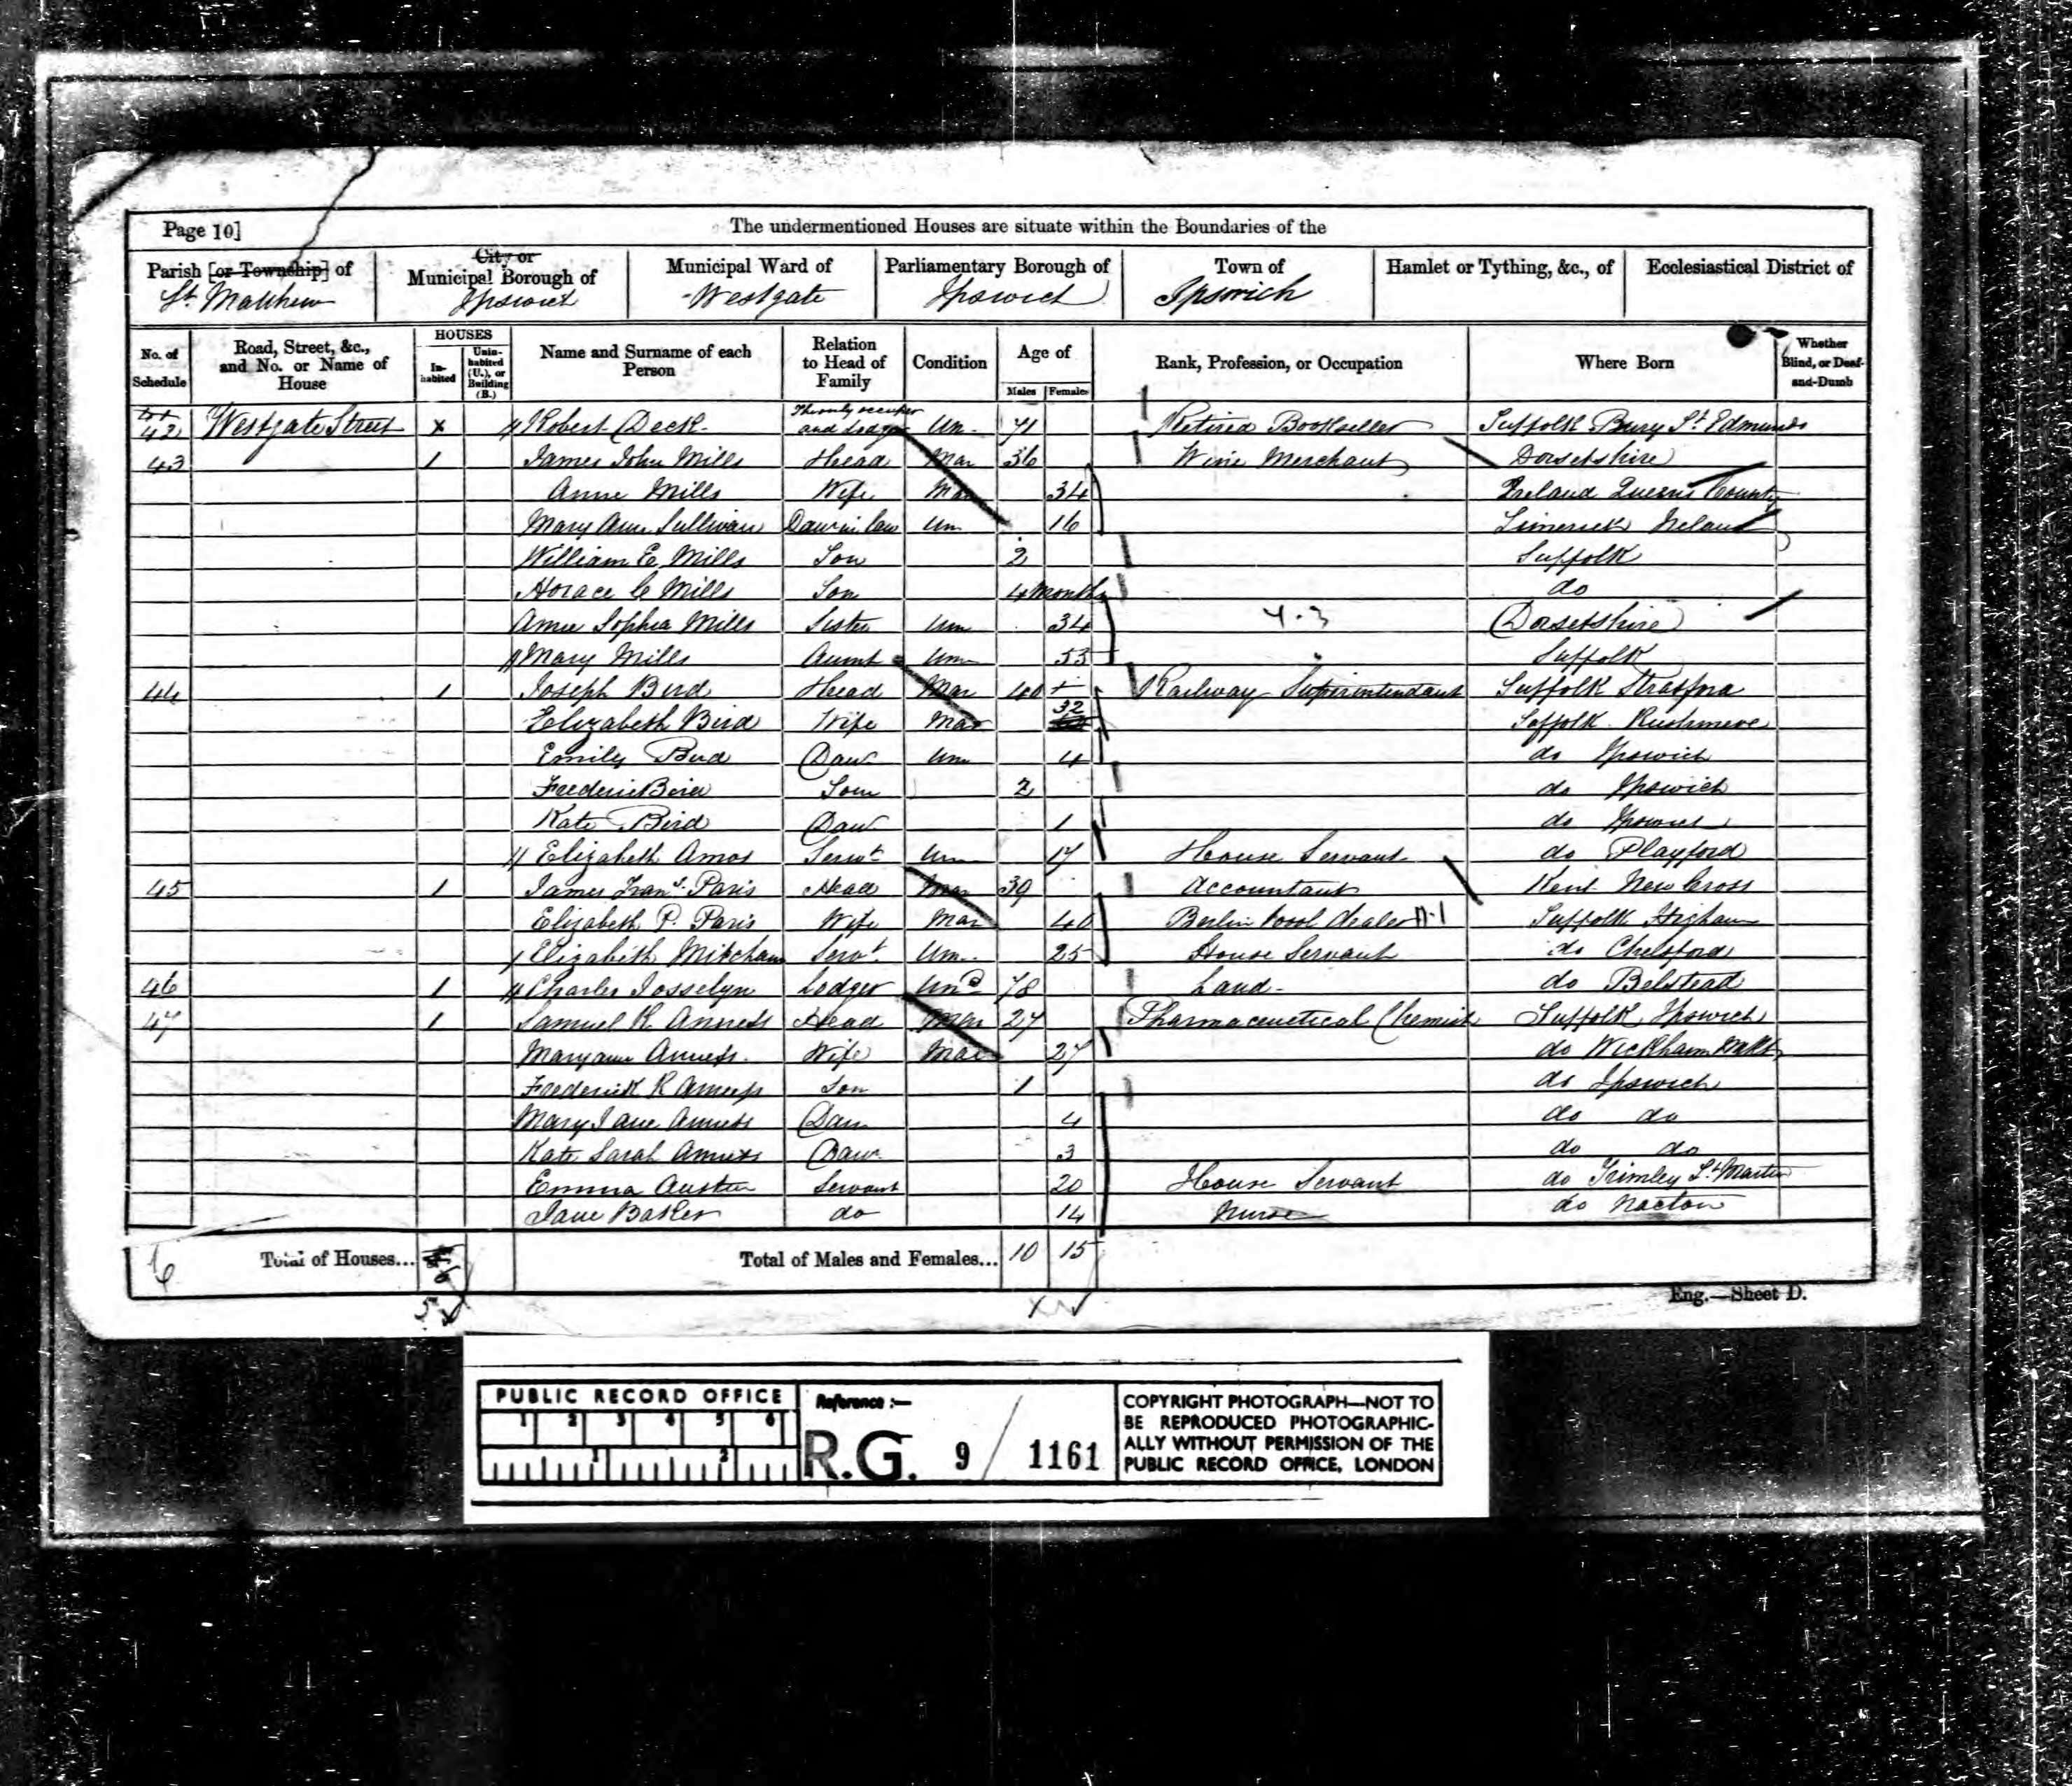 Page 10] The undermentioned Houses are situate within the Boundaries of the
Parish [or Township] of City or Municipal Borough of Municipal Ward of Parliamentary Borough of Town of Hamlet or Tything, &c., of Ecclesiastical District of
St. Matthew Ipswich Westgate Ipswich Ipswich
No. of Schedule Road, Street, &c., and No. or Name of House HOUSES Inhabited Uninhabited (U.), or Building (B.) Name and Surname of each Person Relation to Head of Family Condition Age of Males Females Rank, Profession, or Occupation Where Born Whether Blind, or Deaf-and-Dumb
42 Westgate Street x Robert Deck and Lodger Un 71 Retired Bookseller Suffolk Bury St Edmunds
43 1 James John Mills Head Mar 36 Wine Merchant Dorsetshire
Anne Mills Wife Mar 34 Ireland Queens County
Mary Ann Sullivan Daur in law Un 16 Limerick Ireland
William E Mills Son 2 Suffolk
Horace C Mills Son 4 Months do
Sophia Mills Sister Un 34 4.3 Dorsetshire
Mary Mills Aunt Un 53 Suffolk
44 1 Joseph Bird Head Mar 40 + Railway Superintendant Suffolk
Elizabeth Bird Wife Mar 32 Suffolk Rushmere
Emily Bird Daur Un 4 do Ipswich
Frederic Bird Son 2 do Ipswich
Kate Bird Daur 1 do Ipswich
Elizabeth Amos Servt Un 17 House Servant do Playford
45 1 James Frans. Paris Head Mar 39 Accountant Kent New Cross
Elizabeth P. Paris Wife Mar 40 Berlin wool dealer Suffolk Higham
Elizabeth Mitcham Servt. Un. 25 House Servant do
46 1 Charles Josselyn Lodger Und 78 Land do Belstead
47 1 Samuel R Anness Head Mar 27 Pharmaceutical Chemist Suffolk Ipswich
Maryann Anness Wife Mar 27 do Wickham
Frederick R Anness Son 1 do Ipswich
Mary Jane Anness Daur 4 do do
Kate Sarah Anness Daur 3 do do
Emma Austin Servant 20 House Servant do Trimley St. Martin
Jane Baker do 14 Nurse do Nacton
Total of Houses... Total of Males and Females... 10 15
Eng.—Sheet D.
PUBLIC RECORD OFFICE
1 2 3 4 5 6
1 2
Reference :—
R.G. 9 / 1161
COPYRIGHT PHOTOGRAPH—NOT TO
BE REPRODUCED PHOTOGRAPHIC-
ALLY WITHOUT PERMISSION OF THE
PUBLIC RECORD OFFICE, LONDON